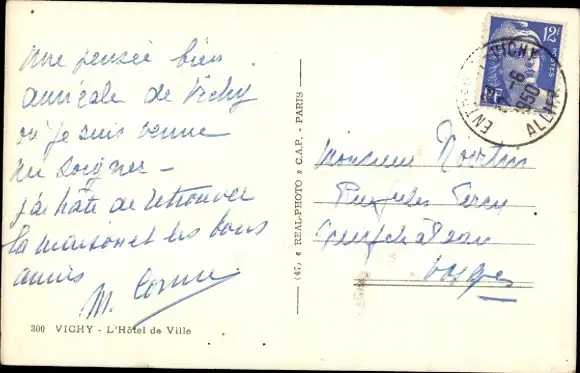 Une pensée bien
amicale de Vichy
où je suis venue
me soigner -
j'ai hâte de retrouver
la maison et les bons
amis
M.
300 VICHY - L'Hôtel de Ville
(47, « REAL-PHOTO » C.A.P. - PARIS
12F
POSTES
RF
VICHY
-6
1950
ALLIER
Monsieur
Neufchâteau
Vosges